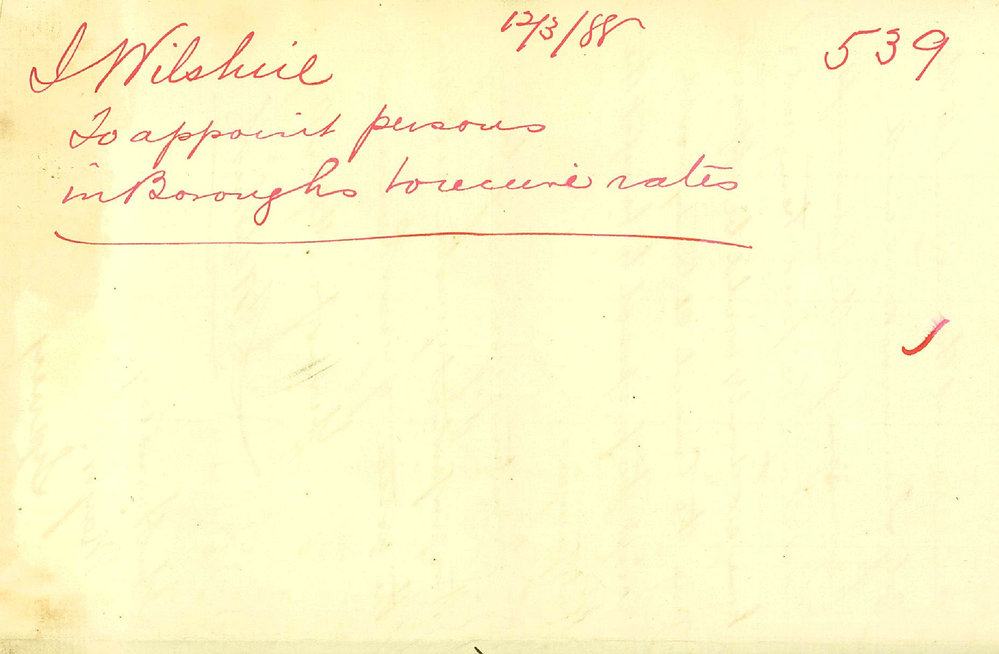 12/3/88
539
J Wilshire
To appoint persons
in Boroughs to receive rates